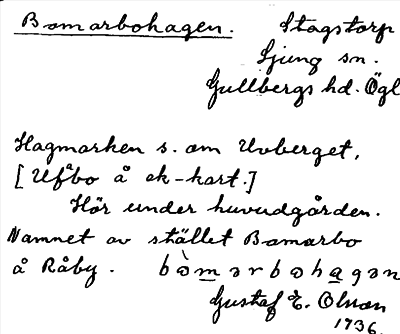 Bomarbohagen. Stagstorp
Ljung sn.
Gullbergs hd. Ögl
Hagmarken s. om Uvberget,
[Ufåbo å ek-kart.]
Hör under huvudgården.
Namnet av stället Bomarbo
å Råby. bòmərbohagən
Gustaf E. Olsson
1936.